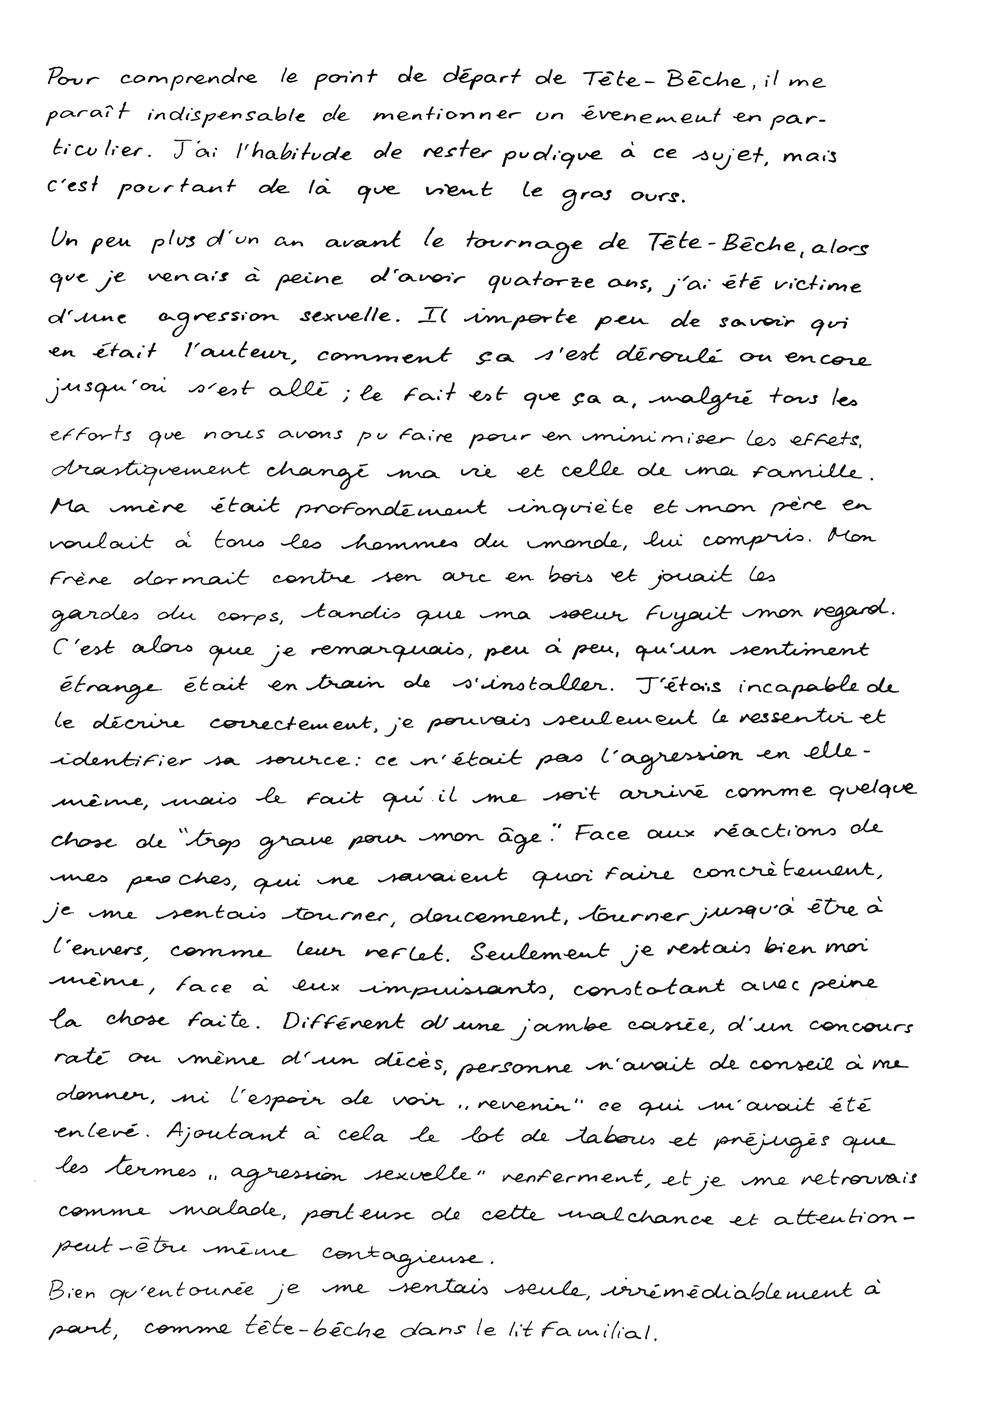 Pour comprendre le point de départ de Tête-Bêche, il me
paraît indispensable de mentionner un évenement en par-
ticulier. J'ai l'habitude de rester pudique à ce sujet, mais
c'est pourtant de là que vient le gros ours.
Un peu plus d'un an avant le tournage de Tête-Bêche, alors
que je venais à peine d'avoir quatorze ans, j'ai été victime
d'une agression sexuelle. Il importe peu de savoir qui
en était l'auteur, comment ça s'est déroulé ou encore
jusqu'où s'est allé ; le fait est que ça a, malgré tous les
efforts que nous avons pu faire pour en minimiser les effets,
drastiquement changé ma vie et celle de ma famille.
Ma mère était profondément inquiète et mon père en
voulait à tous les hommes du monde, lui compris. Mon
frère dormait contre son arc en bois et jouait les
gardes du corps, tandis que ma soeur fuyait mon regard.
C'est alors que je remarquais, peu à peu, qu'un sentiment
étrange était en train de s'installer. J'étais incapable de
le décrire correctement, je pouvais seulement le ressentir et
identifier sa source: ce n'était pas l'agression en elle-
même, mais le fait qu'il me soit arrivé comme quelque
chose de "trop grave pour mon âge". Face aux réactions de
mes proches, qui ne savaient quoi faire concrètement,
je me sentais tourner, doucement, tourner jusqu'à être à
l'envers, comme leur reflet. Seulement je restais bien moi
même, face à eux impuissants, constatant avec peine
la chose faite. Différent d'une jambe cassée, d'un concours
raté ou même d'un décès, personne n'avait de conseil à me
donner, ni l'espoir de voir „revenir" ce qui m'avait été
enlevé. Ajoutant à cela le lot de tabous et préjugés que
les termes „agression sexuelle" renferment, et je me retrouvais
comme malade, porteuse de cette malchance et attention-
peut-être même contagieuse.
Bien qu'entourée je me sentais seule, irrémédiablement à
part, comme tête-bêche dans le lit familial.